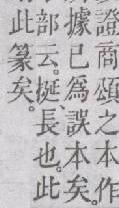 證商頌之本作
據已爲誤本矣。
部云。挻長也。此
此篆矣。